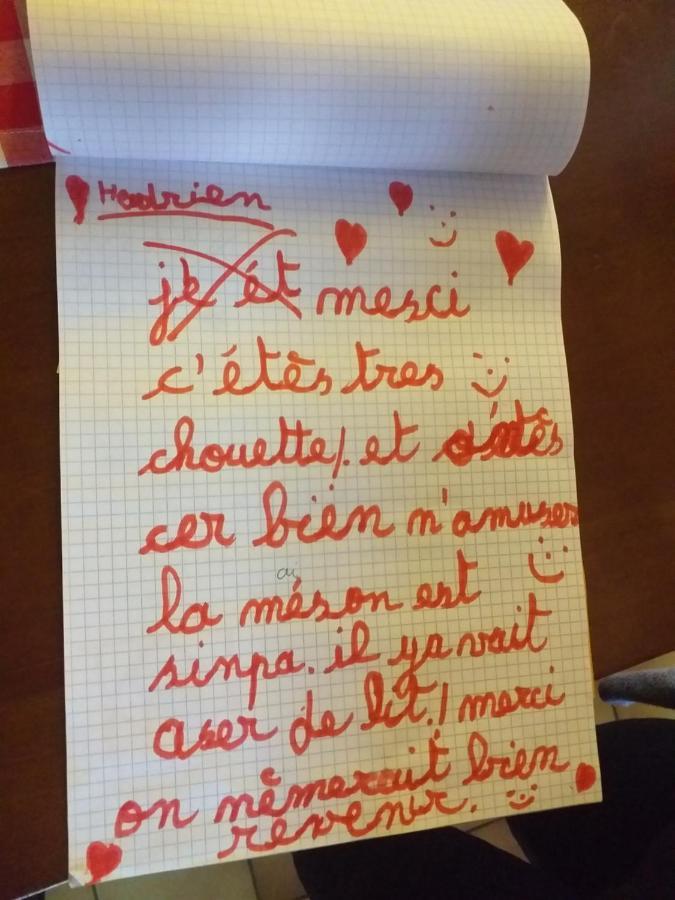 Hadrien
je ét mesci
c'étês tres
chouette!. et
cer bien m'amuser
ai
la méson est
sinpa. il ya vait
aser de lit.! merci
on nêmerait bien
revenir.